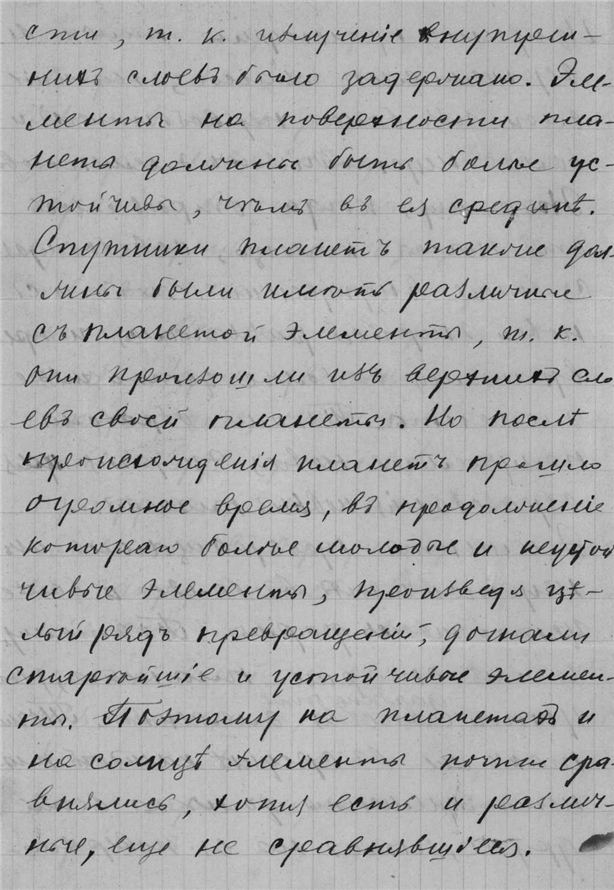 сти, т. к. излученіе внутрен-
нихъ слоевъ было задержано. Эле-
менты на поверхности пла-
неты должны быть болѣе ус-
тойчивы, чѣмъ въ ея срединѣ.
Спутники планетъ также дол-
жны были имѣть различные
съ планетой элементы, т. к.
они произошли изъ верхнихъ сло
евъ своей планеты. Но послѣ
происхожденія планетъ прошло
огромное время, въ продолженіе
котораго болѣе молодые и неустой
чивые элементы, произведя цѣ-
лый рядъ превращеній, догнали
старѣйшіе и устойчивые элемен-
ты. Поэтому на планетахъ и
на солнцѣ элементы почти сра-
внялись, хотя есть и различ-
ные, еще не сравнявшіеся.